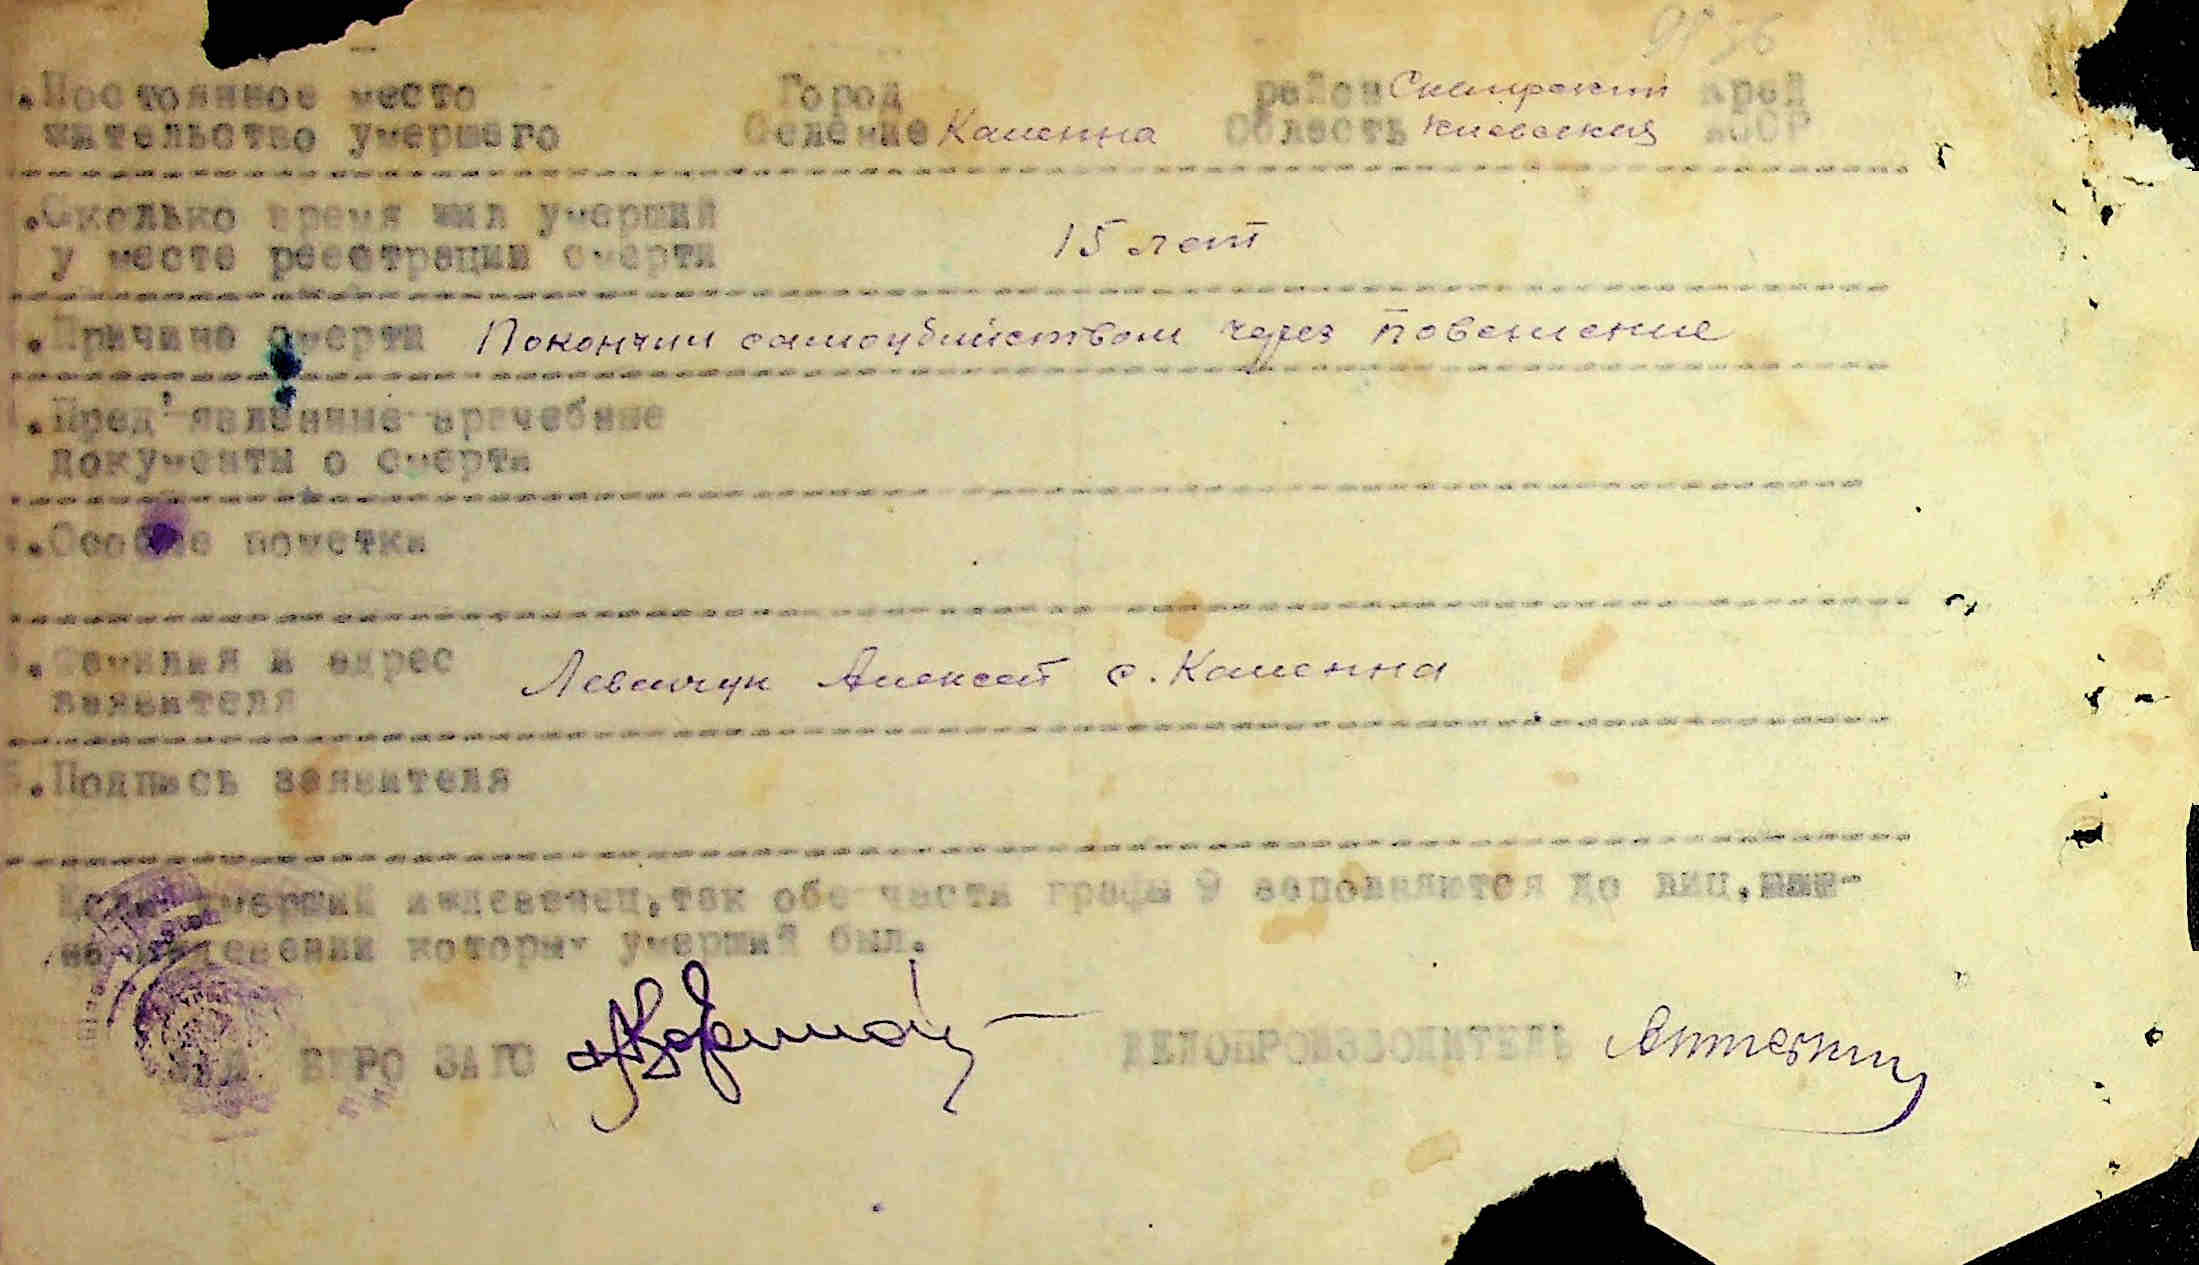 .Постоянное место Город район Сквирский край
жительство умершего Селение Каменна Область Киевская АССР
.Сколько время жил умерший
у места реестрации смерти 15 лет
.Причина смерти Покончил самоубийством через повешение
.Пред'явленные врачебные
документы о смерти
.Особые пометки
.Фамилия и адрес Левчук Алексей с. Каменна
заявителя
.Подпись заявителя
умерший младенец,так обе части графы 9 заполняются до лиц,
иждевении которых умерший был.
ЗАВ. БЮРО ЗАГС ДЕЛОПРОИЗВОДИТЕЛЬ